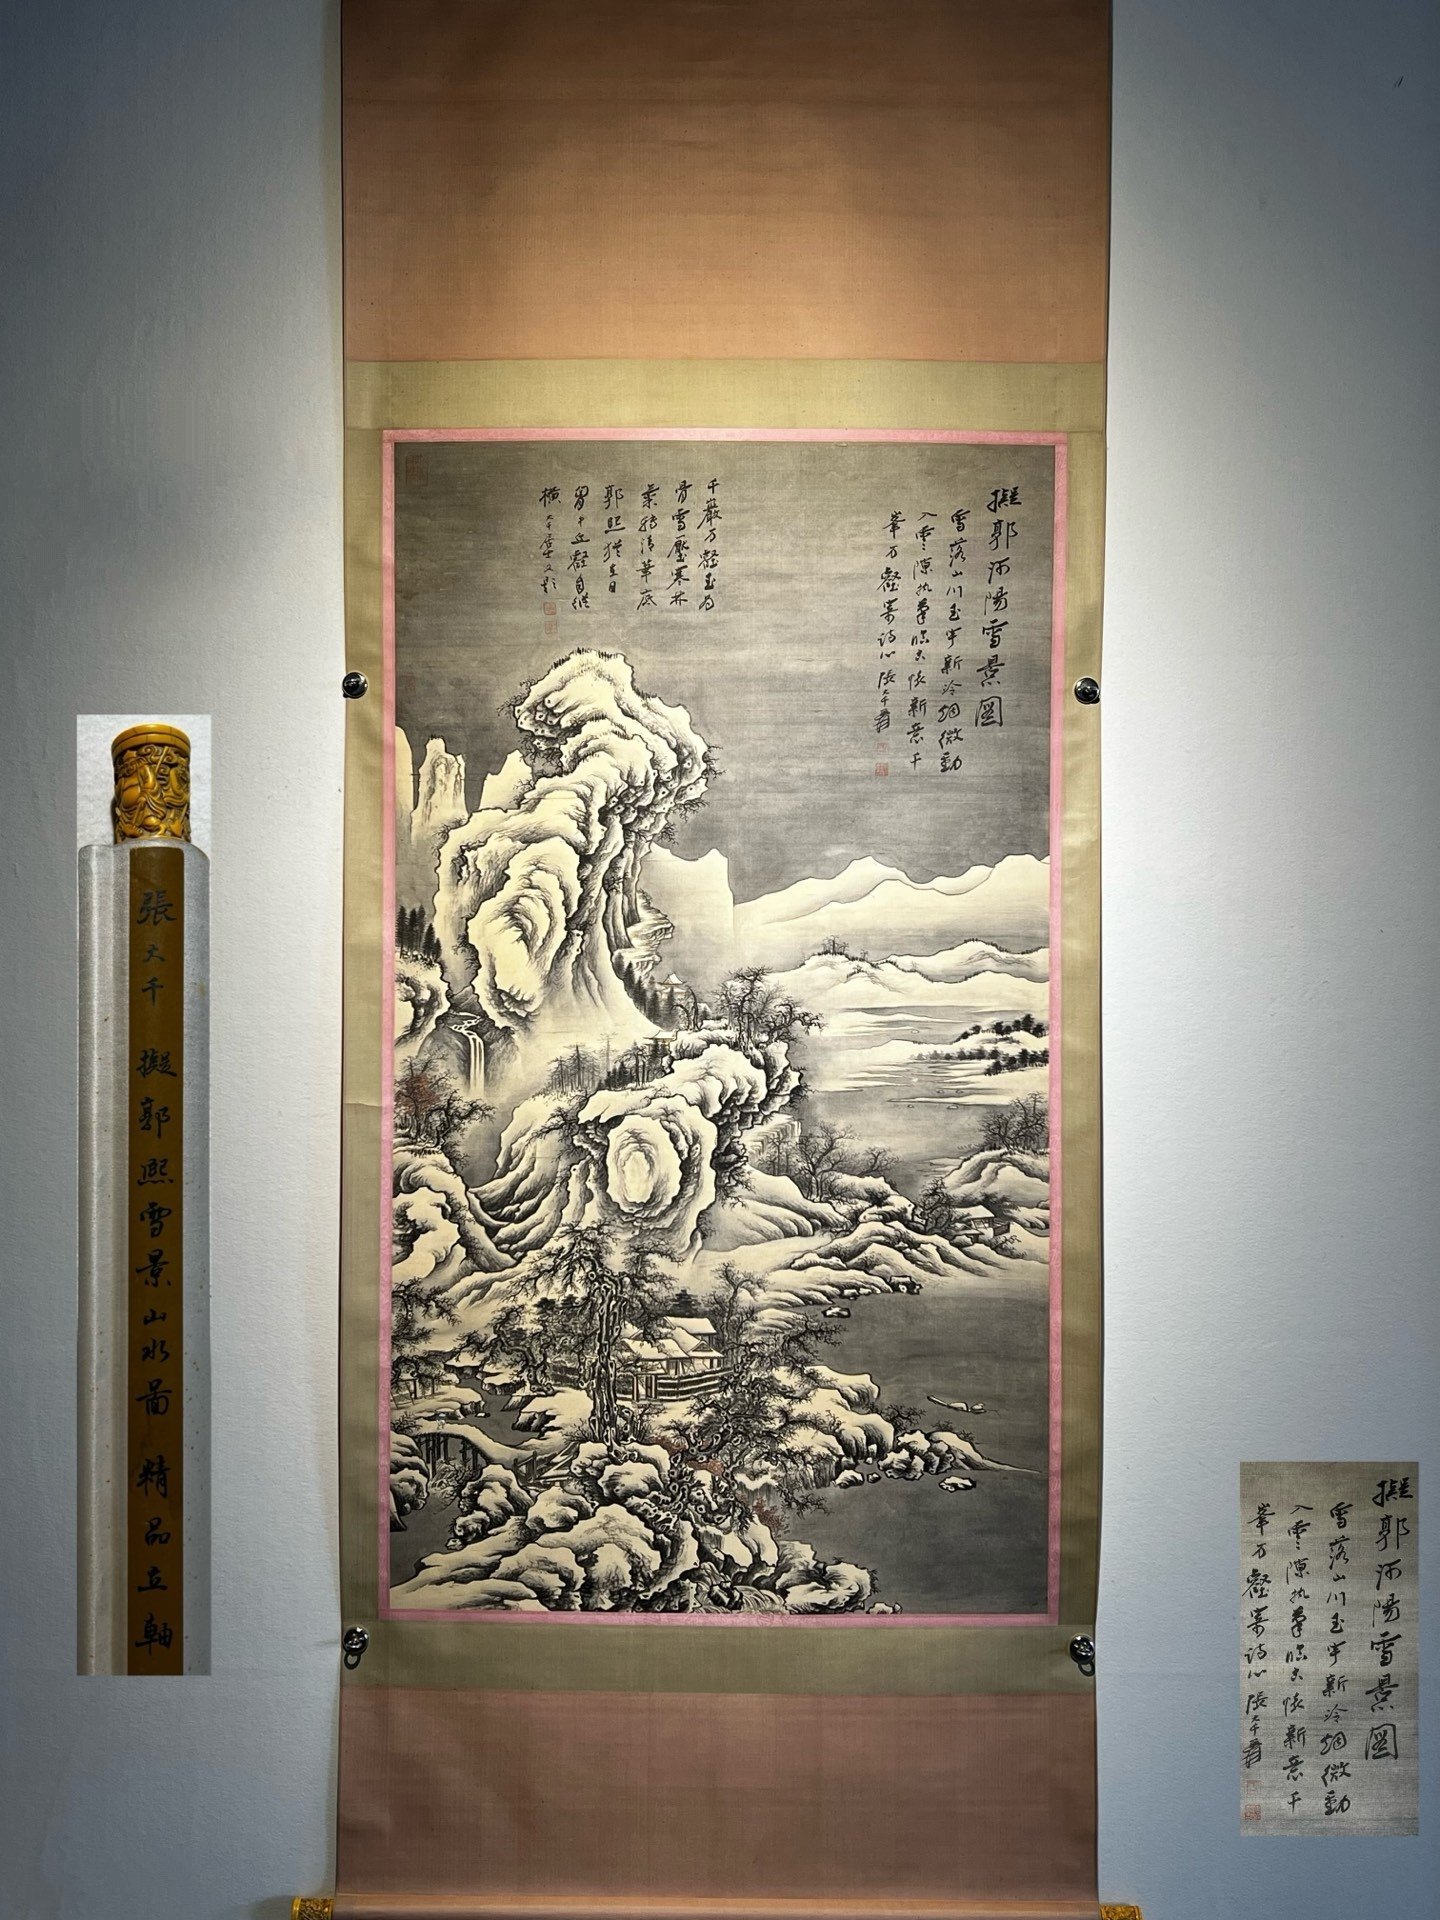 擬郭河陽雪景圖
雪落山川玉宇新冷烟微動
入雲隙執筆臨古懷新意千
峯万壑寄詩心張大千爰
千巖万壑玉為
骨雪壓寒林
氣轉清筆底
郭熙猶在目
胃中丘壑自縱
橫大千居士又題
張大千 擬郭熙雪景山水圖 精品立軸
擬郭河陽雪景圖
雪落山川玉宇新冷烟微動
入雲隙執筆臨古懷新意千
峯万壑寄詩心張大千爰